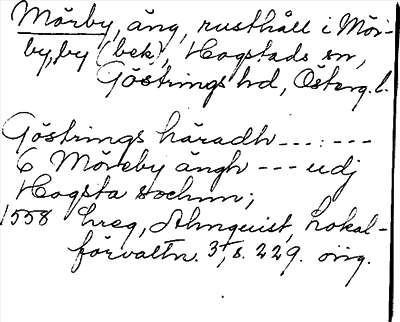 Mörby, äng, rusthåll i Mör-
by, by (bek), Hogstads sn,
Göstrings hd, Österg. l.
Göstrings häradh ---:---
6 Möreby ängh --- udj
Hogsta sochnn;
1558 hreg, Almquist, Lokal-
förvaltn. 3, s. 229. orig.